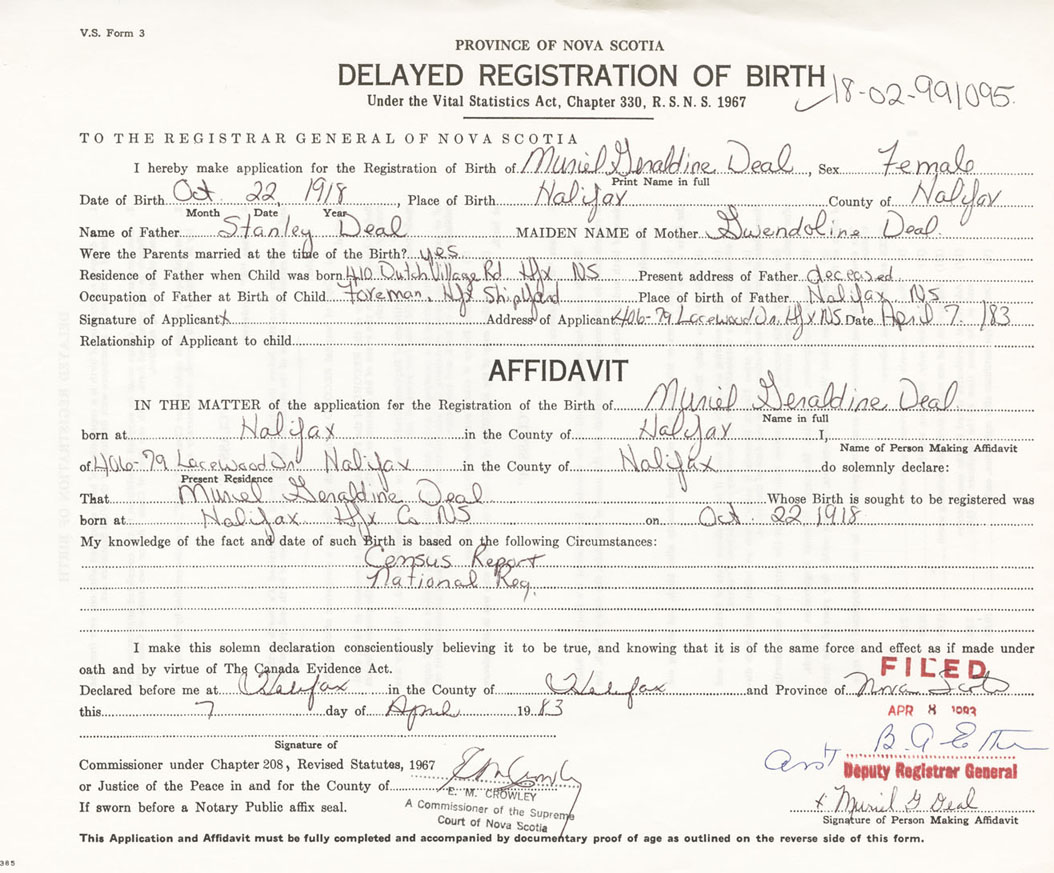 V.S. Form 3
PROVINCE OF NOVA SCOTIA
DELAYED REGISTRATION OF BIRTH
18-02-991095.
Under the Vital Statistics Act, Chapter 330, R.S.N.S. 1967
TO THE REGISTRAR GENERAL OF NOVA SCOTIA
I hereby make application for the Registration of Birth of Muriel Geraldine Deal, Sex Female
Print Name in full
Date of Birth Oct 22, 1918, Place of Birth Halifax County of Halifax
Month Date Year
Name of Father Stanley Deal MAIDEN NAME of Mother Gwendoline Deal.
Were the Parents married at the time of the Birth? yes.
Residence of Father when Child was born 410 Dutch Village Rd Hfx NS Present address of Father deceased
Occupation of Father at Birth of Child Foreman, Hfx Shipyard Place of birth of Father Halifax NS
Signature of Applicant x Address of Applicant 406-79 Lacewood Dr. Hfx NS Date April 7. /83
Relationship of Applicant to child
AFFIDAVIT
IN THE MATTER of the application for the Registration of the Birth of Muriel Geraldine Deal
Name in full
born at Halifax in the County of Halifax I,
Name of Person Making Affidavit
of 406-79 Lacewood Dr. Halifax in the County of Halifax do solemnly declare:
Present Residence
That Muriel Geraldine Deal Whose Birth is sought to be registered was
born at Halifax Hfx Co NS on Oct. 22 1918
My knowledge of the fact and date of such Birth is based on the following Circumstances:
Census Report
National Reg.
I make this solemn declaration conscientiously believing it to be true, and knowing that it is of the same force and effect as if made under
oath and by virtue of The Canada Evidence Act.
FILED
Declared before me at Halifax in the County of Halifax and Province of Nova Scotia
this 7 day of April 1983
APR 8 1983
Signature of
Commissioner under Chapter 208, Revised Statutes, 1967
Asst Deputy Registrar General
or Justice of the Peace in and for the County of
E. M. CROWLEY
A Commissioner of the Supreme
Court of Nova Scotia
If sworn before a Notary Public affix seal.
x Muriel G Deal
Signature of Person Making Affidavit
This Application and Affidavit must be fully completed and accompanied by documentary proof of age as outlined on the reverse side of this form.
385